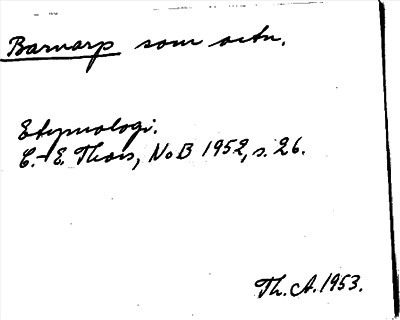 Barnarp som ortn.
Etymologi.
C.-E. Thors, NoB 1952, s. 26.
Th. A. 1953.